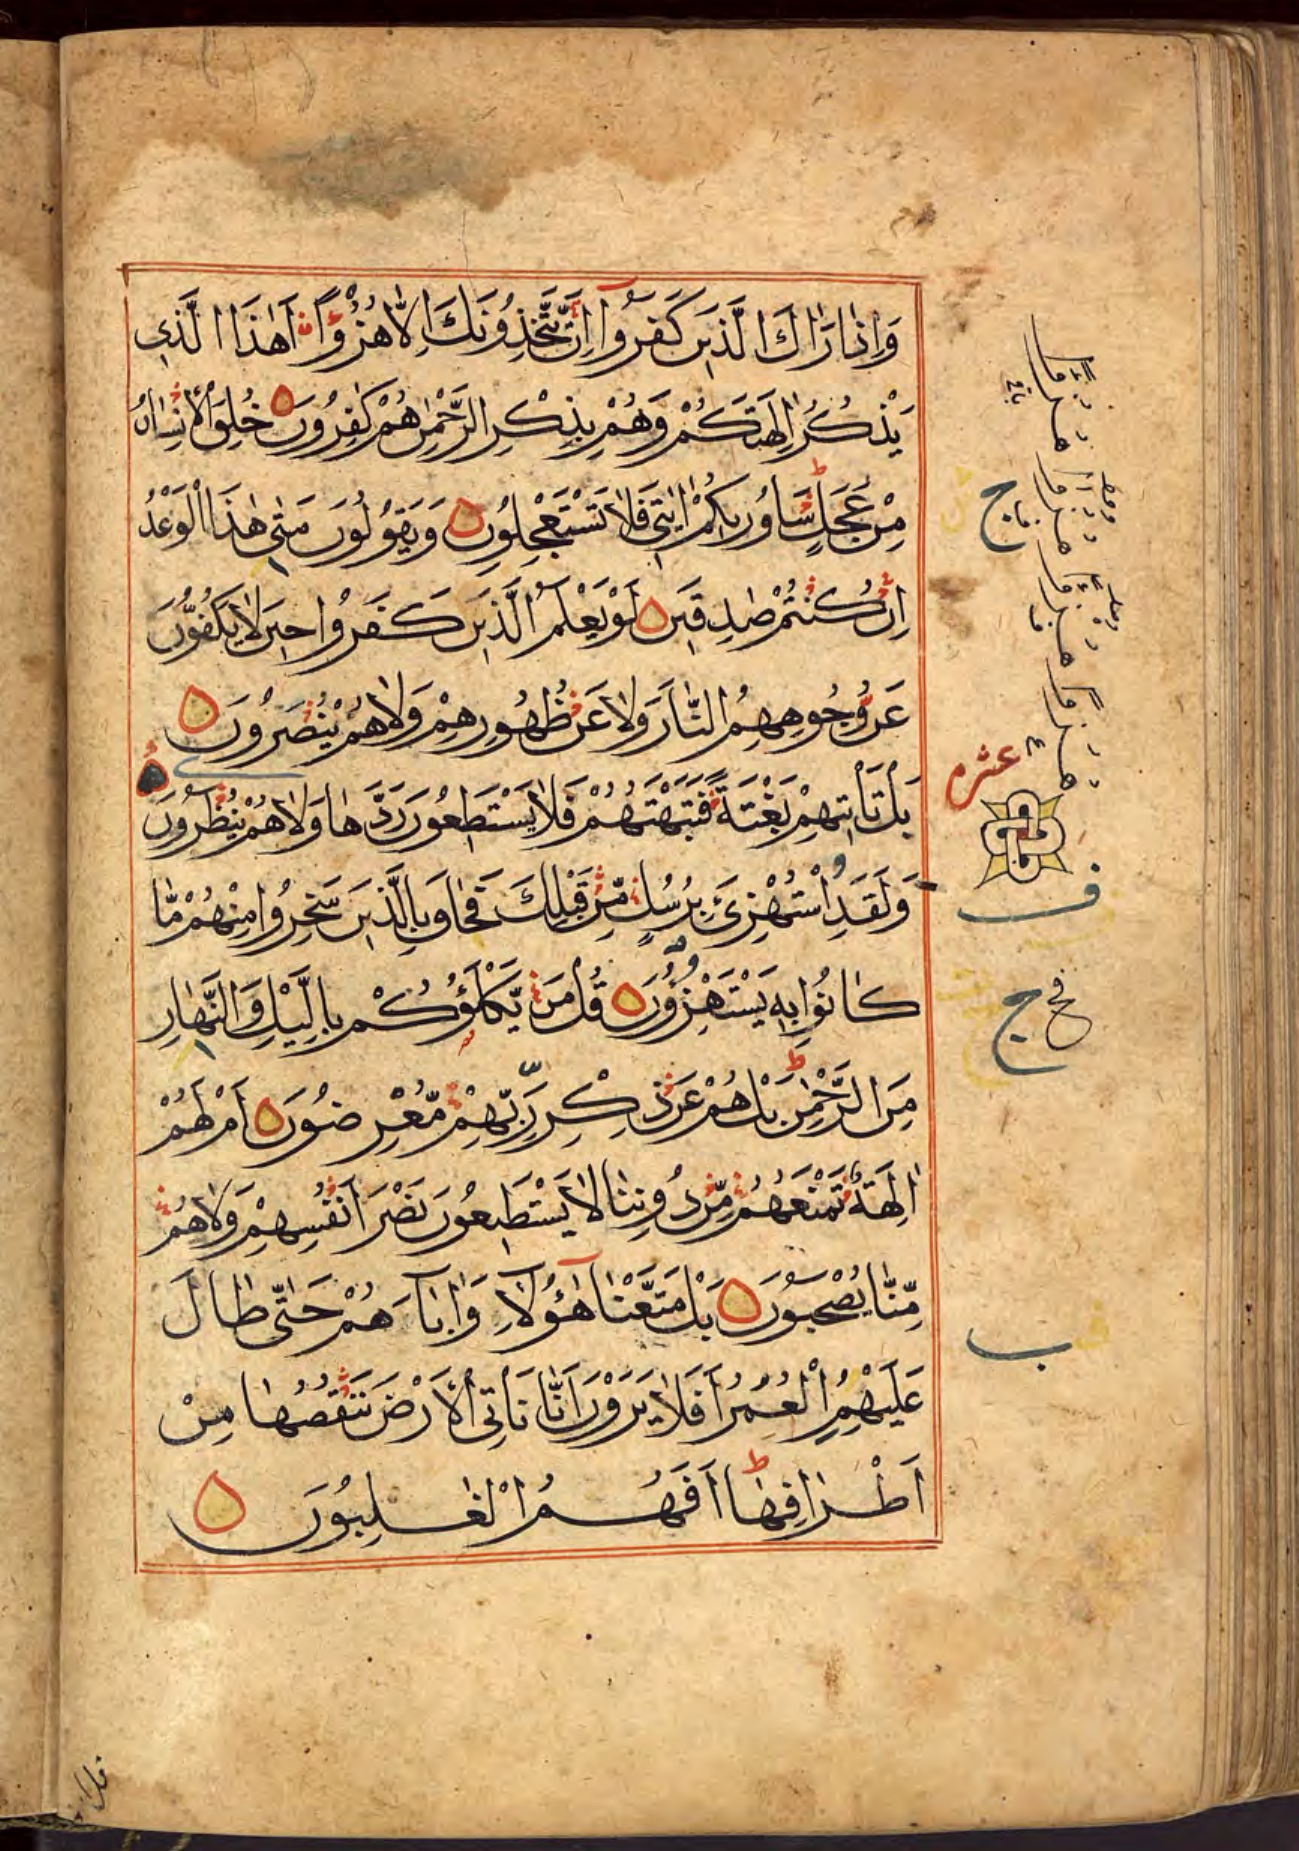 وَاِذَا رَاٰكَ الَّذِيْنَ كَفَرُوْٓا اِنْ يَّتَّخِذُوْنَكَ اِلَّا هُزُوًا اَهٰذَا الَّذِيْ
يَذْكُرُ اٰلِهَتَكُمْ وَهُمْ بِذِكْرِ الرَّحْمٰنِ هُمْ كٰفِرُوْنَ خُلِقَ الْاِنْسَانُ
مِنْ عَجَلٍ ط سَاُورِيْكُمْ اٰيٰتِيْ فَلَا تَسْتَعْجِلُوْنِ وَيَقُوْلُوْنَ مَتٰى هٰذَا الْوَعْدُ
اِنْ كُنْتُمْ صٰدِقِيْنَ لَوْ يَعْلَمُ الَّذِيْنَ كَفَرُوْا حِيْنَ لَا يَكُفُّوْنَ
عَنْ وُّجُوْهِهِمُ النَّارَ وَلَا عَنْ ظُهُوْرِهِمْ وَلَا هُمْ يُنْصَرُوْنَ
بَلْ تَاْتِيْهِمْ بَغْتَةً فَتَبْهَتُهُمْ فَلَا يَسْتَطِيْعُوْنَ رَدَّهَا وَلَا هُمْ يُنْظَرُوْنَ
وَلَقَدِ اسْتُهْزِئَ بِرُسُلٍ مِّنْ قَبْلِكَ فَحَاقَ بِالَّذِيْنَ سَخِرُوْا مِنْهُمْ مَّا
كَانُوْا بِهٖ يَسْتَهْزِءُوْنَ قُلْ مَنْ يَّكْلَؤُكُمْ بِالَّيْلِ وَالنَّهَارِ
مِنَ الرَّحْمٰنِ ط بَلْ هُمْ عَنْ ذِكْرِ رَبِّهِمْ مُّعْرِضُوْنَ اَمْ لَهُمْ
اٰلِهَةٌ تَمْنَعُهُمْ مِّنْ دُوْنِنَا لَا يَسْتَطِيْعُوْنَ نَصْرَ اَنْفُسِهِمْ وَلَا هُمْ
مِّنَّا يُصْحَبُوْنَ بَلْ مَتَّعْنَا هٰٓؤُلَآءِ وَاٰبَآءَهُمْ حَتّٰى طَالَ
عَلَيْهِمُ الْعُمُرُ اَفَلَا يَرَوْنَ اَنَّا نَاْتِي الْاَرْضَ نَنْقُصُهَا مِنْ
اَطْرَافِهَا ط اَفَهُمُ الْغٰلِبُوْنَ
ج
عشرم
ف
ج
ب